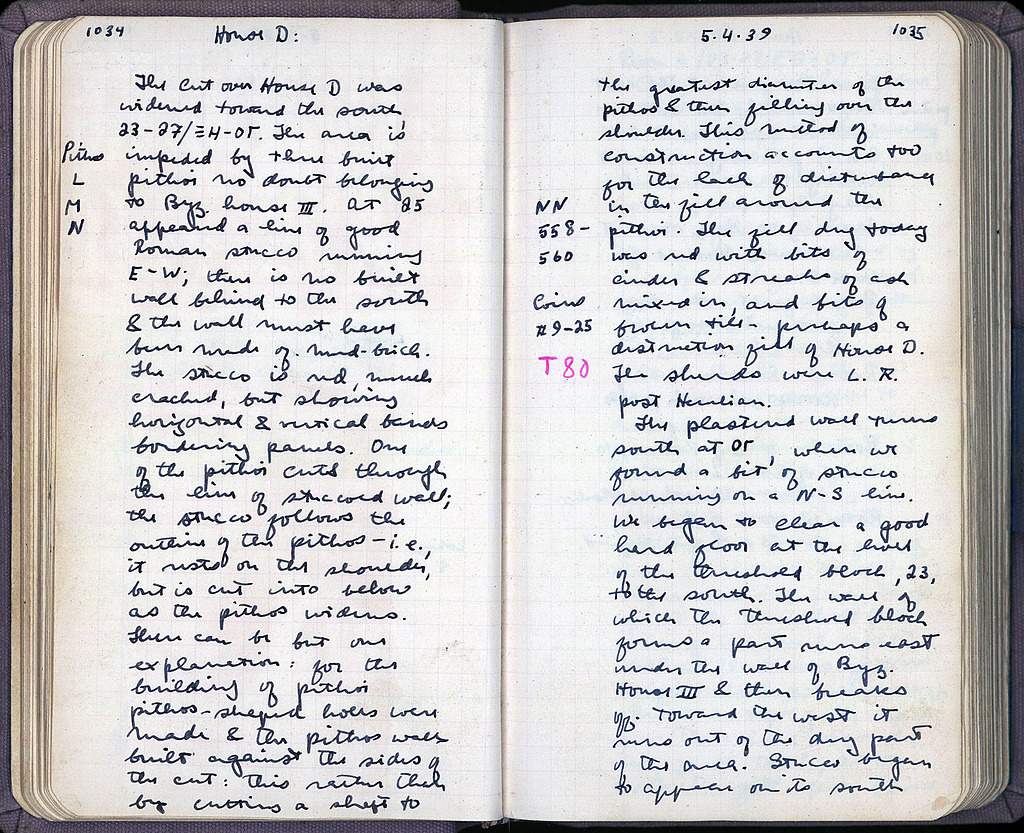 1034
House D:
The cut over House D was
widened toward the south
23-27/ΞH-ΟΓ. The area is
Pithos
impeded by three built
L
pithoi no doubt belonging
M
to Byz. house III. At 25
N
appeared a line of good
Roman stucco running
E-W; there is no built
wall behind to the south
& the wall must have
been made of mud-brick.
The stucco is red, much
cracked, but showing
horizontal & vertical bands
bordering panels. One
of the pithoi cuts through
the line of stuccoed wall;
the stucco follows the
outline of the pithos - i.e.,
it rests on the shoulder,
but is cut into below
as the pithos widens.
There can be but one
explanation: for the
building of pithoi
pithos-shaped holes were
made & the pithos walls
built against the sides of
the cut: this rather than
by cutting a shaft to
5.4.39
1035
the greatest diameter of the
pithos & then filling over the
shoulder. This method of
construction accounts too
for the lack of disturbance
NN
in the fill around the
558-
pithoi. The fill dug today
560
was red with bits of
cinder & streaks of ash
Coins
mixed in, and bits of
#9-25
broken tile - perhaps a
destruction fill of House D.
T 80
The sherds were L. R.
post Herulian.
The plastered wall turns
south at ΟΓ, where we
found a bit of stucco
running on a N-S line.
We began to clear a good
hard floor at the level
of the threshold block, 23,
to the south. The wall of
which the threshold block
forms a part runs east
under the wall of Byz.
House III & then breaks
off. Toward the west it
runs out of the dug part
of the area. Stucco began
to appear on its south